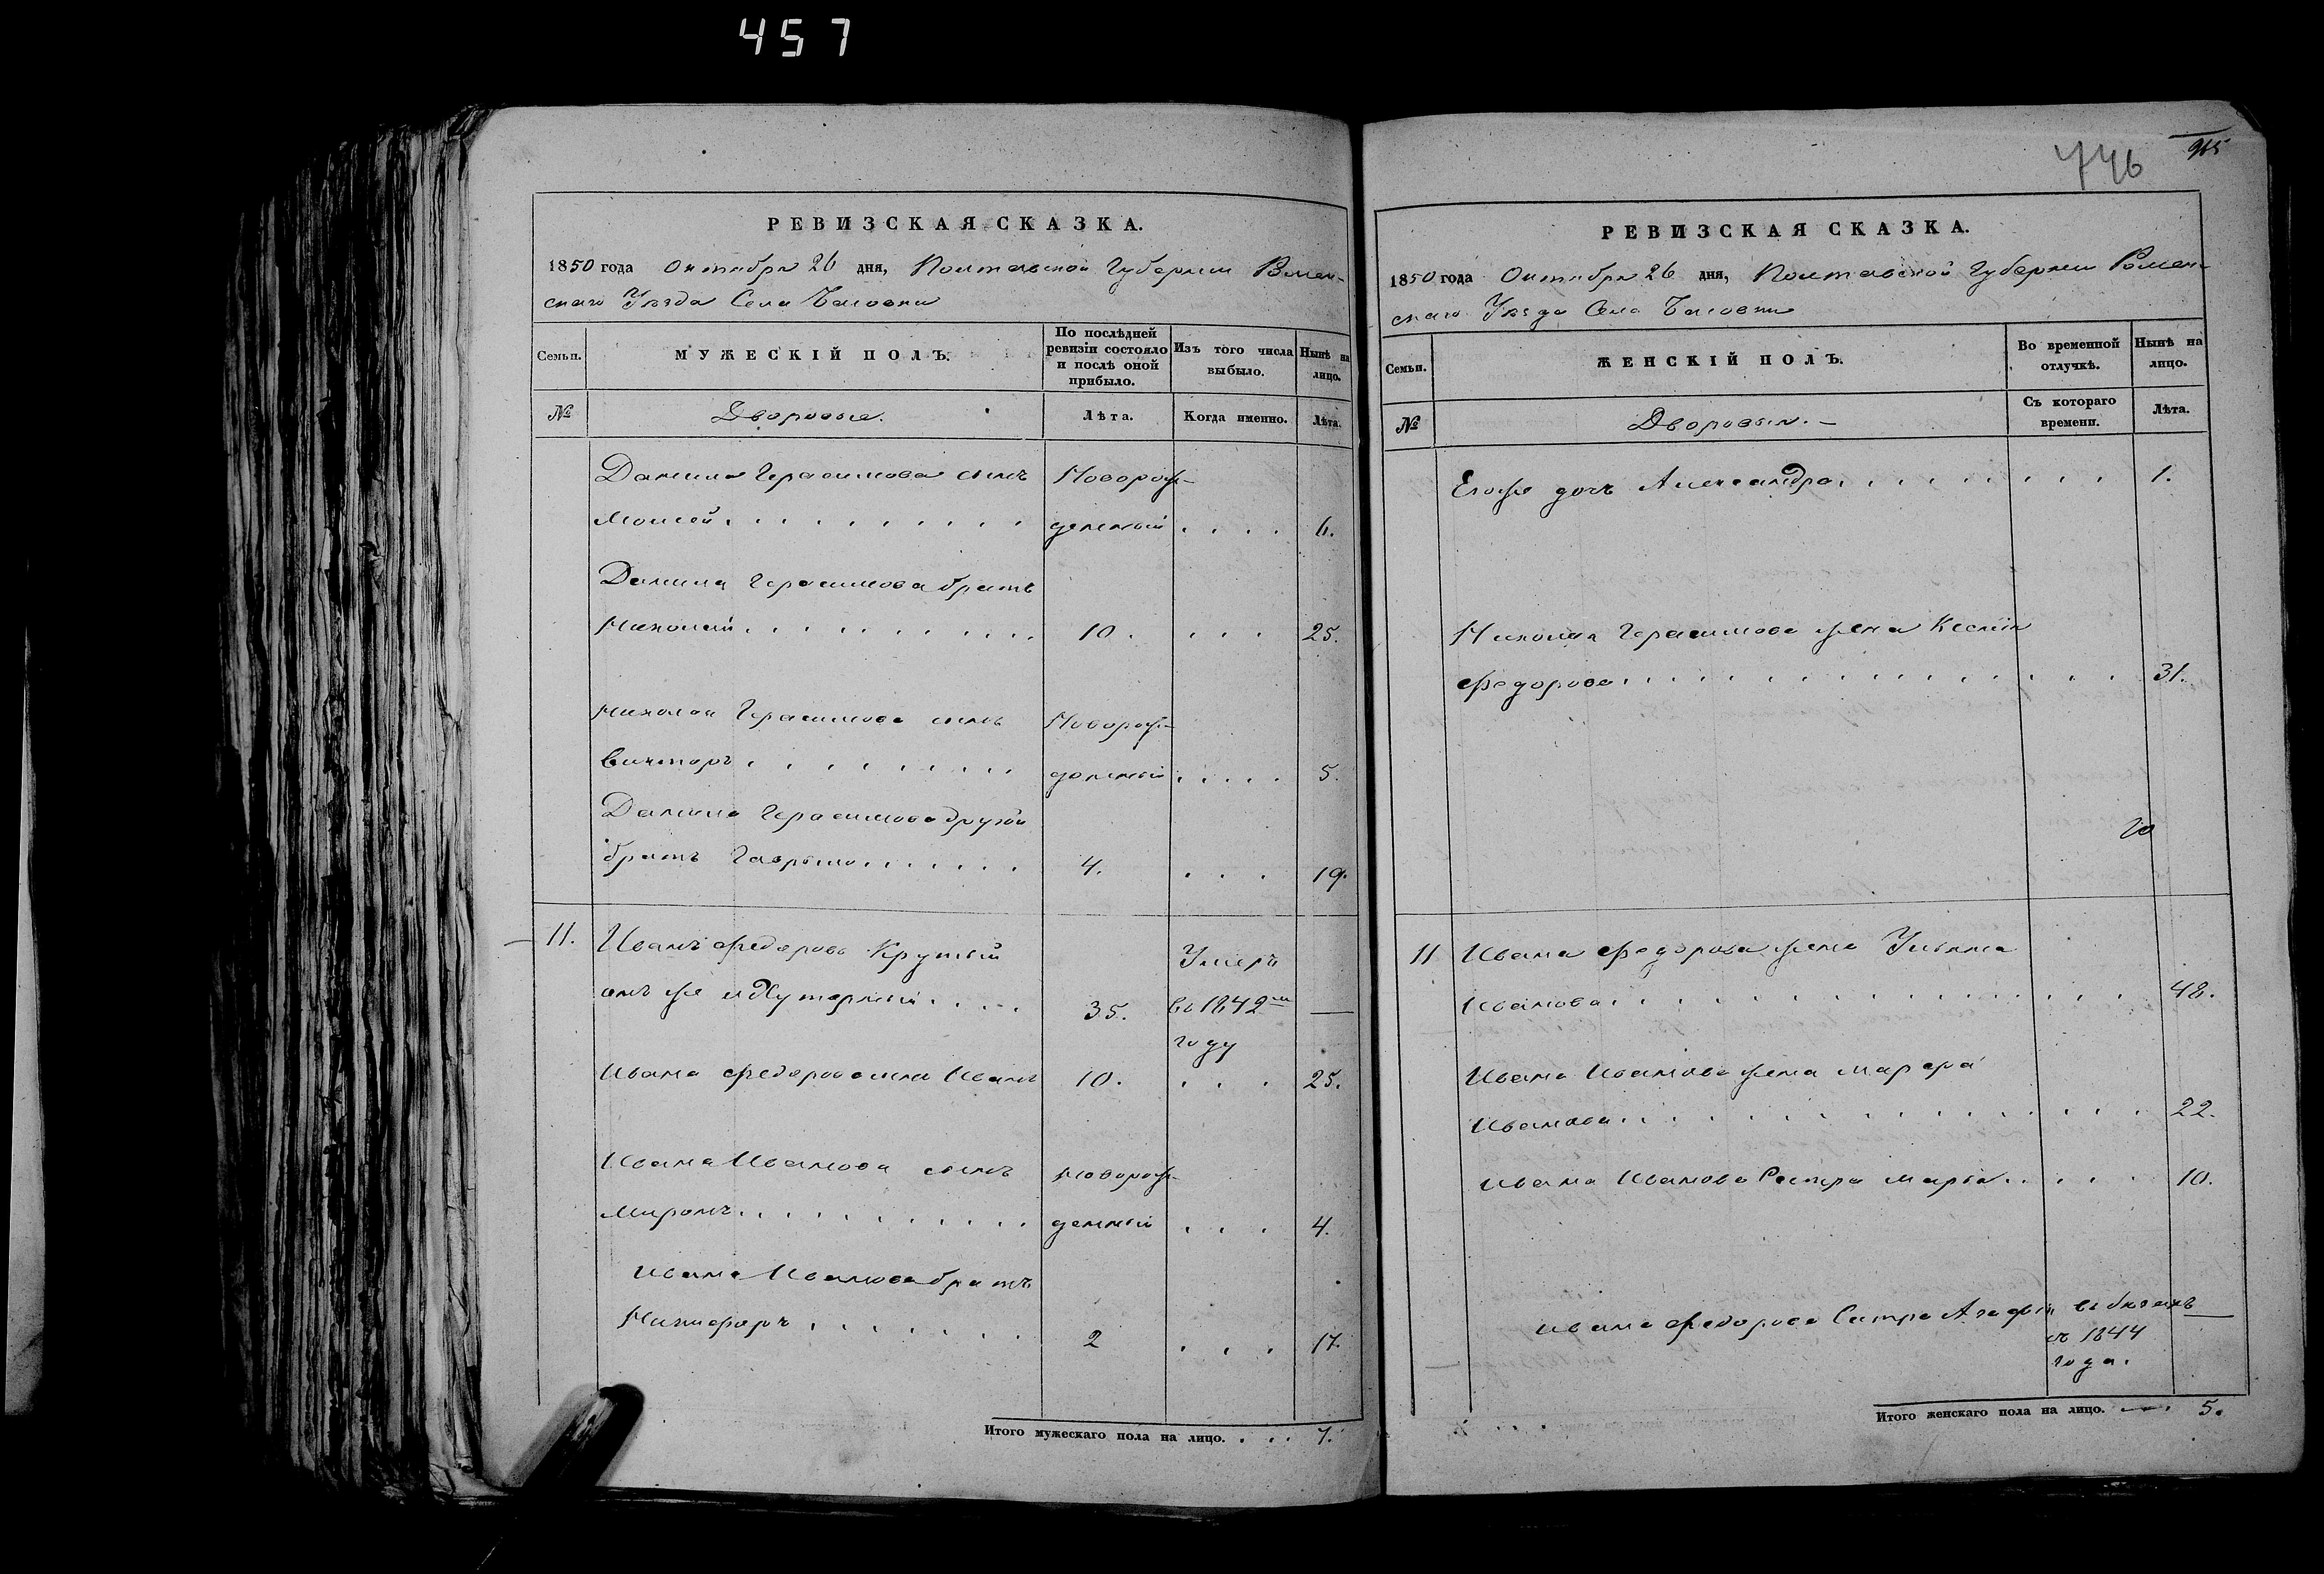 457
РЕВИЗСКАЯ СКАЗКА.
1850 года Октября 26 дня, Полтавской Губернии Ромен-
скаго Уѣзда Села
Семьи.
МУЖЕСКІЙ ПОЛЪ.
По послѣдней ревизіи состояло и послѣ оной прибыло.
Изъ того числа выбыло.
Нынѣ на лицо.
№
Дворовые.
Лѣта.
Когда именно.
Лѣта.
Данила Герасимова сынъ Новорож-
Моисей . . . . . . . . . денный . . . . 6.
Данила Герасимова братъ
Николай . . . . . . . . . . 10. . . . 25.
Николая Герасимова сынъ Новорож-
Викторъ . . . . . . . . денный . . . . 5.
Данила Герасимова другой
братъ Гаврило . . . . . . 4. . . . 19.
11. Иванъ Федоровъ Крутый Умеръ
онъ же и Хуторный . . . . 35. въ 1842м —
году
Ивана Федорова сынъ Иванъ 10. . . . 25.
Ивана Иванова сынъ новорож-
Миронъ . . . . . . . . . . денный . . . 4.
Ивана Иванова братъ
Никифоръ . . . . . . . 2 . . . 17.
Итого мужескаго пола на лицо. . . . 7.
776 965
РЕВИЗСКАЯ СКАЗКА.
1850 года Октября 26 дня, Полтавской Губерніи Ромен-
скаго Уѣзда Села
Семьи.
ЖЕНСКІЙ ПОЛЪ.
Во временной отлучкѣ.
Нынѣ на лицо.
№
Дворовыя. —
Съ котораго времени.
Лѣта.
Егожъ дочь Александра . . . . . . . . 1.
Николая Герасимова жена Ксенія
Федорова . . . . . . . . . . . . . . . 31.
11 Ивана Федорова жена Ульяна
Иванова . . . . . . . . . . . . . . . 48.
Ивана Иванова жена Марфа
Иванова . . . . . . . . . . . . . . . 22.
Ивана Иванова Сестра Марья . . . . . 10.
Ивана Федорова Сестра Агафія въ бегахъ —
съ 1844
года.
Итого женскаго пола на лицо. — . 5.